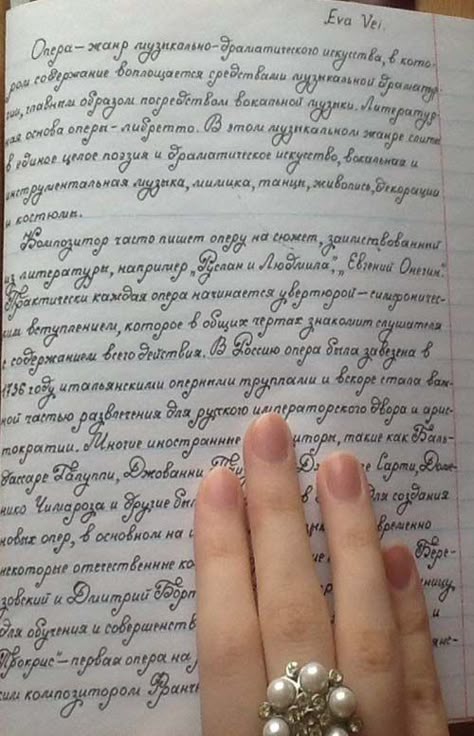 Eva Vei.
Опера – жанр музыкально-драматического искусства, в кото-
ром содержание воплощается средствами музыкальной драматур-
гии, главным образом посредством вокальной музыки. Литератур-
ная основа оперы – либретто. В этом музыкальном жанре слиты
в единое целое поэзия и драматическое искусство, вокальная и
инструментальная музыка, мимика, танцы, живопись, декорации
и костюмы.
Композитор часто пишет оперу на сюжет, заимствованный
из литературы, например „Руслан и Людмила," „Евгений Онегин."
Практически каждая опера начинается увертюрой – симфоничес-
ким вступлением, которое в общих чертах знакомит слушателя
с содержанием всего действия. В Россию опера была завезена в
1736 году итальянскими оперными труппами и вскоре стала важ-
ной частью развлечения для русского императорского двора и арис-
тократии. Многие иностранные торы, такие как Баль-
дассаре Галуппи, Джованни Сарти, Доме-
нико Чимароза и другие для создания
новых опер, в основном на временно
некоторые отечественные Бере-
зовский и Дмитрий
для обучения и и
Прокрис" – первая опера на
ким композитором